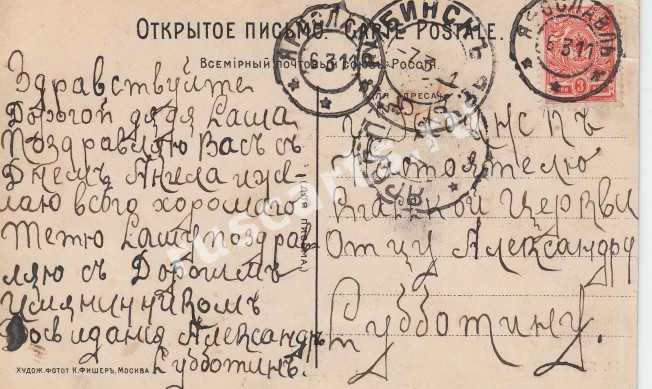 ОТКРЫТОЕ ПИСЬМО. CARTE POSTALE.
ВСЕМІРНЫЙ ПОЧТОВЫЙ СОЮЗЪ РОССІЯ.
ДЛЯ АДРЕСА
ЯРОСЛАВЛЬ
6 3 11
РЫБИНСКЪ
ЯРОСЛАВЛЬ
6 3 11
Здравствуйте
Дорогой дядя Саша
Поздравляю Васъ съ
Днемъ Ангела и же-
лаю всего хорошаго
Тетю Сашу поздрав
ляю съ Дорогимъ
Имянинникомъ
Досвиданія Александръ
Субботинъ.
(ДЛЯ ПИСЬМА.)
Настоятелю
Церкви
Отцу Александру
Субботину.
ХУДОЖ. ФОТОТ К. ФИШЕРЪ, МОСКВА
ruscards.ru